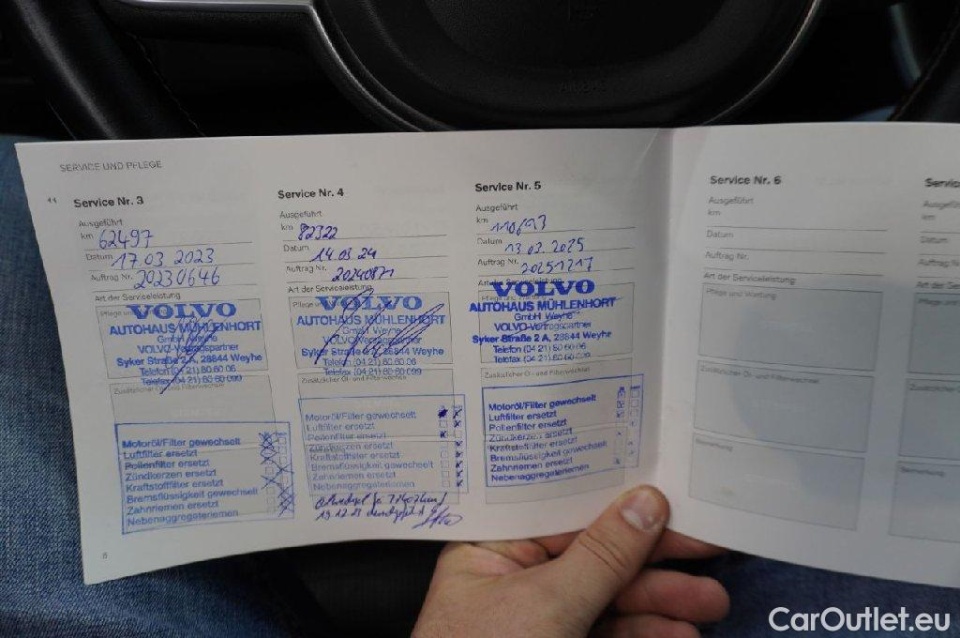 SERVICE UND PFLEGE
Service Nr. 3
Ausgeführt
km 62497
Datum 17 03 2023
Auftrag Nr. 20230646
Art der Serviceleistung
VOLVO
AUTOHAUS MÜHLENHORT
GmbH Weyhe
VOLVO-Vertragspartner
Syker Straße 2 A, 28844 Weyhe
Telefon (04 21) 80 60 06
Telefax (04 21) 80 60 099
Motoröl/Filter gewechselt
Luftfilter ersetzt
Pollenfilter ersetzt
Zündkerzen ersetzt
Kraftstoffilter ersetzt
Bremsflüssigkeit gewechselt
Zahnriemen ersetzt
Nebenaggregateriemen
8
Service Nr. 4
Ausgeführt
km 82322
Datum 14 03 24
Auftrag Nr. 20240871
Art der Serviceleistung
VOLVO
AUTOHAUS MÜHLENHORT
GmbH Weyhe
VOLVO-Vertragspartner
Syker Straße 2 A, 28844 Weyhe
Telefon (04 21) 80 60 06
Telefax (04 21) 80 60 099
Zusätzlicher Öl- und Filterwechsel
Motoröl/Filter gewechselt
Luftfilter ersetzt
Pollenfilter ersetzt
Zündkerzen ersetzt
Kraftstoffilter ersetzt
Bremsflüssigkeit gewechselt
Zahnriemen ersetzt
Nebenaggregateriemen
Service Nr. 5
Ausgeführt
km 110693
Datum 13.03.2025
Auftrag Nr. 20251217
Art der Serviceleistung
VOLVO
AUTOHAUS MÜHLENHORT
GmbH Weyhe
VOLVO-Vertragspartner
Syker Straße 2 A, 28844 Weyhe
Telefon (04 21) 80 60 06
Telefax (04 21) 80 60 099
Zusätzlicher Öl- und Filterwechsel
Motoröl/Filter gewechselt
Luftfilter ersetzt
Pollenfilter ersetzt
Zündkerzen ersetzt
Kraftstoffilter ersetzt
Bremsflüssigkeit gewechselt
Zahnriemen ersetzt
Nebenaggregateriemen
Service Nr. 6
Ausgeführt
km
Datum
Auftrag Nr.
Art der Serviceleistung
Pflege und Wartung
Zusätzlicher Öl- und Filterwechsel
CarOutlet.eu